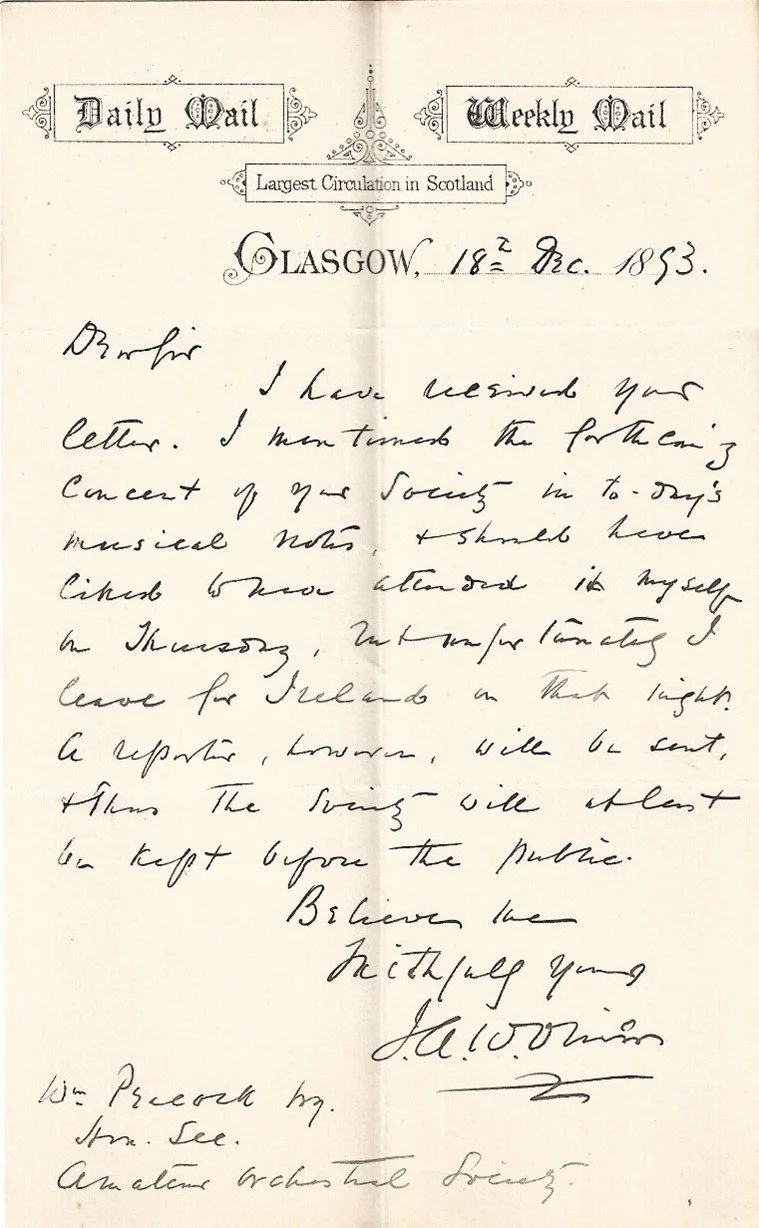 Daily Mail
Weekly Mail
Largest Circulation in Scotland
GLASGOW, 18th Dec. 1893.
Dear Sir
I have received your
letter. I mentioned the forthcoming
concert of your Society in to-day's
musical notes, & should have
liked to have attended it myself
on Thursday, but unfortunately I
leave for Ireland on that night.
A reporter, however, will be sent,
& thus the Society will at least
be kept before the public.
Believe me
Faithfully yours
J.A.W.
Wm Peacock Esq.
Hon. Sec.
Amateur Orchestral Society.